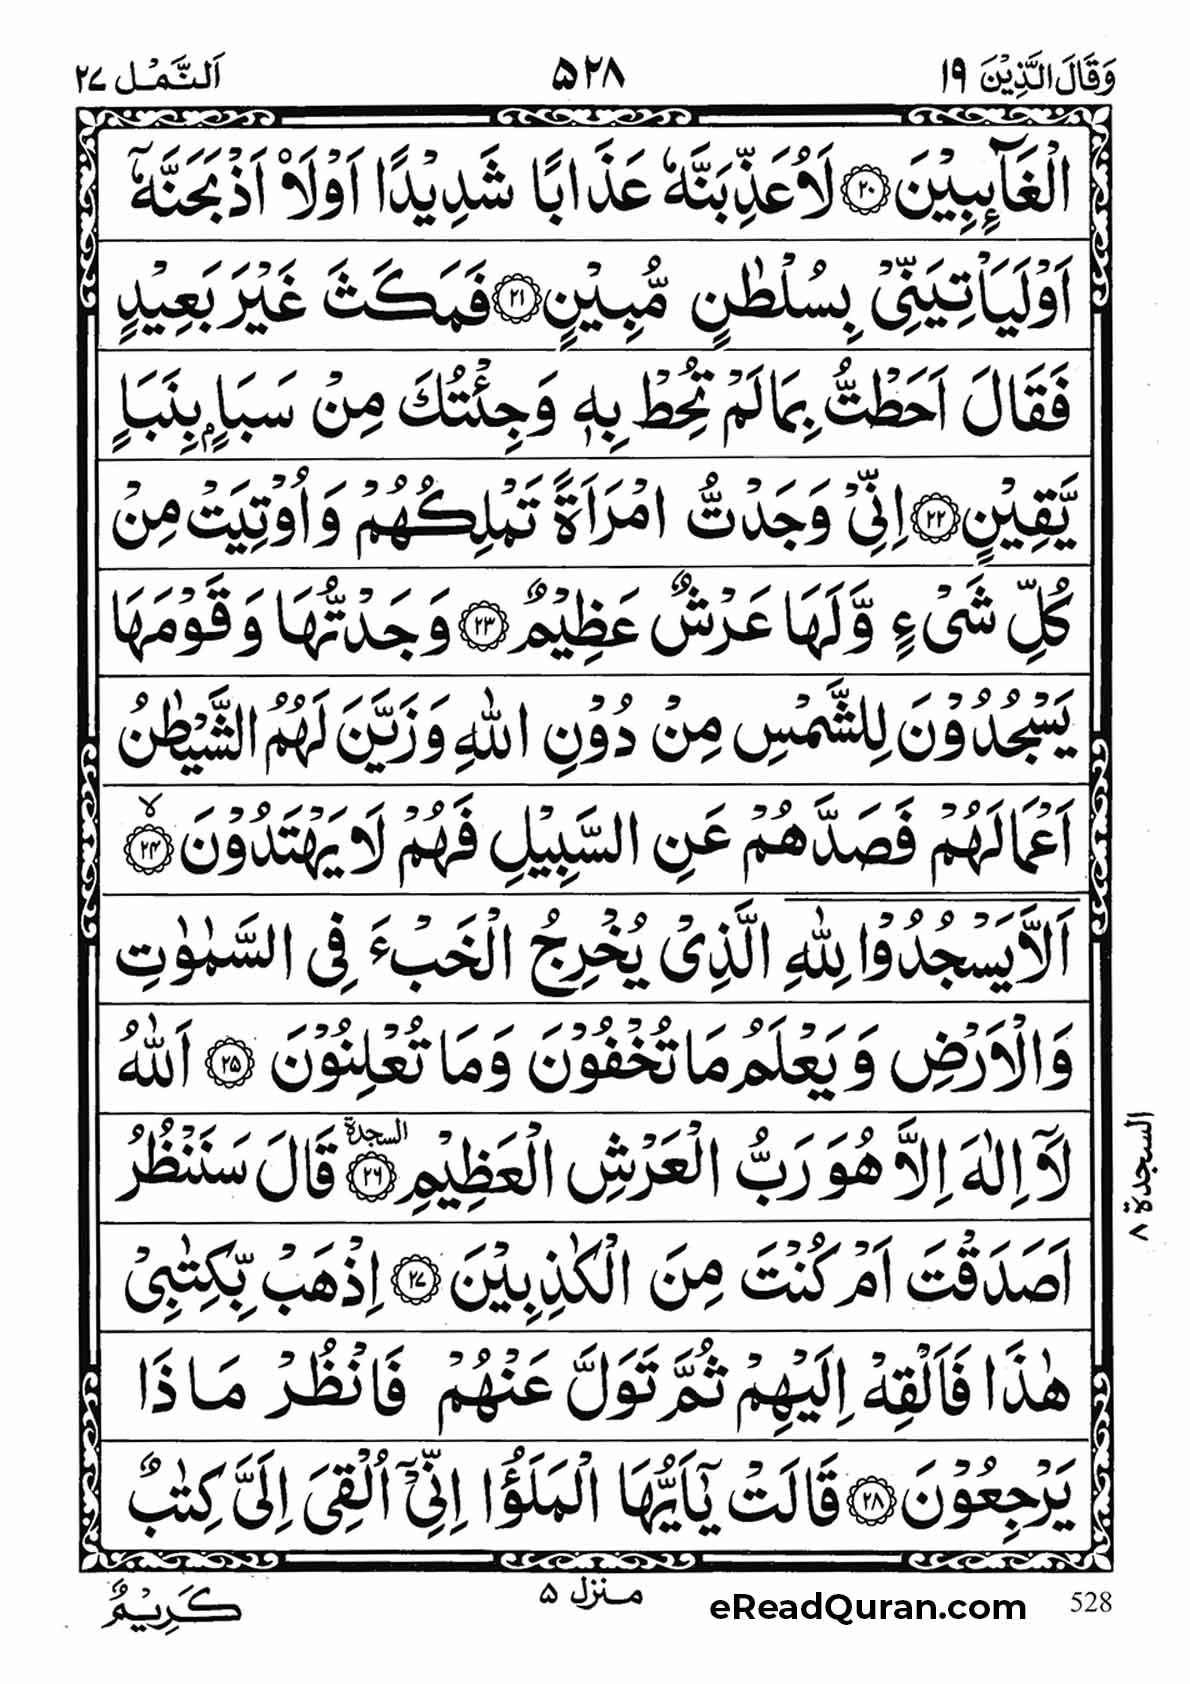 وَقَالَ الَّذِيْنَ ۱۹ ۵۲۸ اَلنَّمْل ۲۷
الْغَآىِٕبِيْنَ ۝۲۰ لَاُعَذِّبَنَّهٗ عَذَابًا شَدِيْدًا اَوْلَاۡ اَذْبَحَنَّهٗۤ
اَوْلَيَاْتِيَنِّيْ بِسُلْطٰنٍ مُّبِيْنٍ ۝۲۱ فَمَكَثَ غَيْرَ بَعِيْدٍ
فَقَالَ اَحَطْتُّ بِمَا لَمْ تُحِطْ بِهٖ وَجِئْتُكَ مِنْ سَبَاٍۭ بِنَبَاٍ
يَّقِيْنٍ ۝۲۲ اِنِّيْ وَجَدْتُّ امْرَاَةً تَمْلِكُهُمْ وَاُوْتِيَتْ مِنْ
كُلِّ شَيْءٍ وَّلَهَا عَرْشٌ عَظِيْمٌ ۝۲۳ وَجَدْتُّهَا وَقَوْمَهَا
يَسْجُدُوْنَ لِلشَّمْسِ مِنْ دُوْنِ اللّٰهِ وَزَيَّنَ لَهُمُ الشَّيْطٰنُ
اَعْمَالَهُمْ فَصَدَّهُمْ عَنِ السَّبِيْلِ فَهُمْ لَا يَهْتَدُوْنَ ۝۲۴ لا
اَلَّا يَسْجُدُوْا لِلّٰهِ الَّذِيْ يُخْرِجُ الْخَبْءَ فِي السَّمٰوٰتِ
وَالْاَرْضِ وَيَعْلَمُ مَا تُخْفُوْنَ وَمَا تُعْلِنُوْنَ ۝۲۵ اَللّٰهُ
لَآ اِلٰهَ اِلَّا هُوَ رَبُّ الْعَرْشِ الْعَظِيْمِ ۝۲۶ السجدة قَالَ سَنَنْظُرُ
السجدة ۸
اَصَدَقْتَ اَمْ كُنْتَ مِنَ الْكٰذِبِيْنَ ۝۲۷ اِذْهَبْ بِّكِتٰبِيْ
هٰذَا فَاَلْقِهْ اِلَيْهِمْ ثُمَّ تَوَلَّ عَنْهُمْ فَانْظُرْ مَاذَا
يَرْجِعُوْنَ ۝۲۸ قَالَتْ يٰۤاَيُّهَا الْمَلَؤُا اِنِّيْۤ اُلْقِيَ اِلَيَّ كِتٰبٌ
كَرِيْمٌ منزل ۵ eReadQuran.com 528